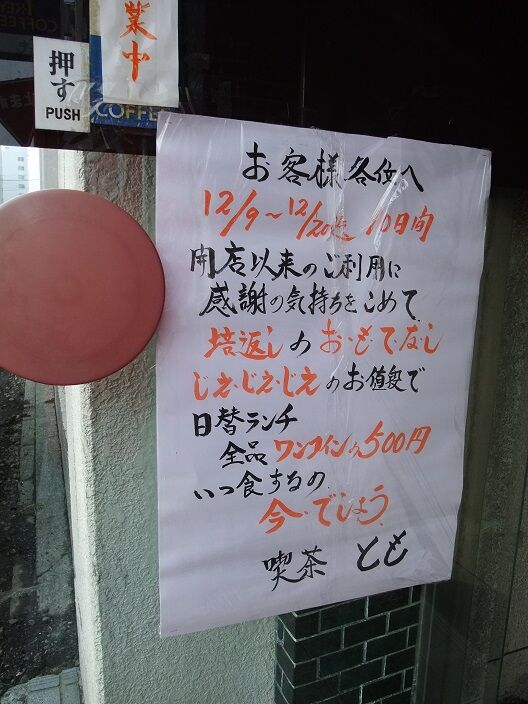 業中
押す
PUSH
COFFEE
お客様各位へ
12/9～12/20迄 10日間
開店以来のご利用に
感謝の気持ちをこめて
倍返しのお・も・て・なし
じぇ・じぇ・じぇのお値段で
日替ランチ
全品ワンコインの500円
いつ食するの
今・でしょう
喫茶 とも